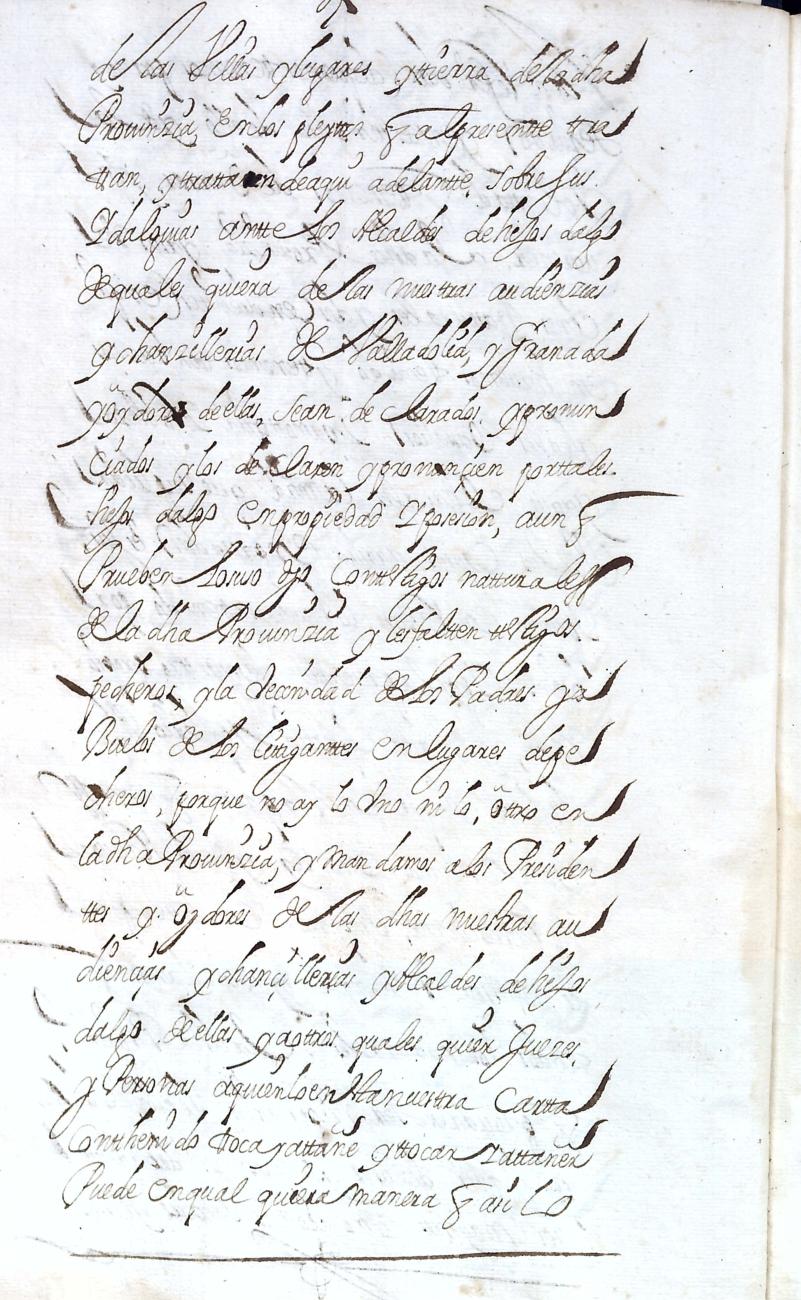 de las Villas y lugares y ttierra de la dha
Prouinzia, en los pleyttos q̃ al presentte tra
ttan, y trattaren de aqui adelantte, sobre sus
Ydalguias antte los Alcaldes de hijos dalgo
de quales quiera de las nuestras audienzias
y chanzillerias de Valladolid, y Granada
y oydores de ellas, sean declarados y pronun
ciados y los declaren y pronunçien por ttales
hijos dalgo en propiedad Y posesion, aun q̃
Prueben lo suso dho con ttestigos natturales
de la dha Prouinzia y les faltten ttestigos
pecheros, y la Vecindad de los Padres y a
Buelos de los Littiganttes en lugares de pe
cheros, porque no ay lo Vno ni lo, ottro en
la dha Prouinzia, y mandamos a los Presiden
ttes y oydores de las dhas nuestras au
diençias y chançillerias y Alcaldes de hijos
dalgo de ellas y a ottros quales quier Juezes
y Personas a quien lo en Esta nuestra Cartta
Contthenido ttoca y attañe y ttocar Y attañer
Puede en qual quiera manera q̃ asi lo